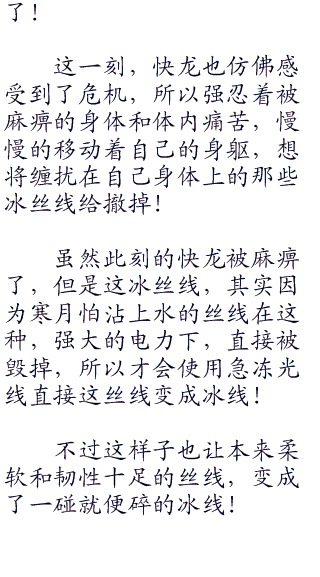 了！
这一刻，快龙也仿佛感
受到了危机，所以强忍着被
麻痹的身体和体内痛苦，慢
慢的移动着自己的身躯，想
将缠扰在自己身体上的那些
冰丝线给撤掉！
虽然此刻的快龙被麻痹
了，但是这冰丝线，其实因
为寒月怕沾上水的丝线在这
种，强大的电力下，直接被
毁掉，所以才会使用急冻光
线直接这丝线变成冰线！
不过这样子也让本来柔
软和韧性十足的丝线，变成
了一碰就便碎的冰线！